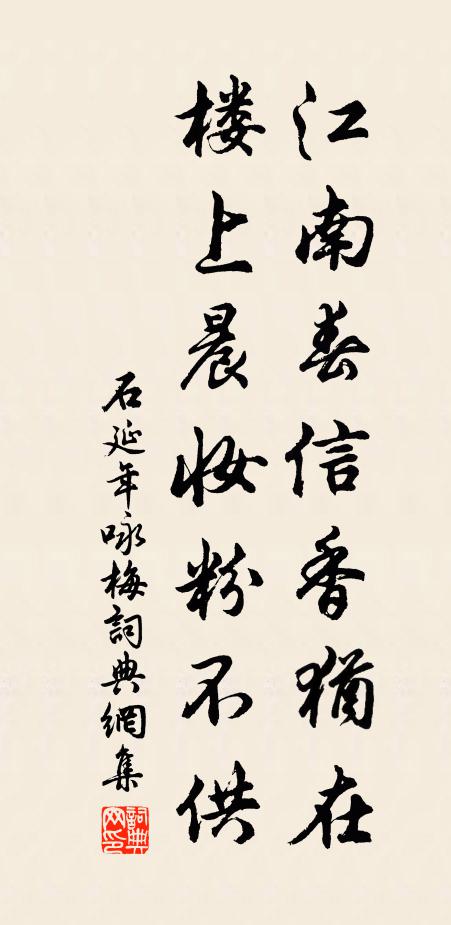 江南春信香犹在
楼上晨妆粉不供
石延年咏梅詞典網集
詞典网印